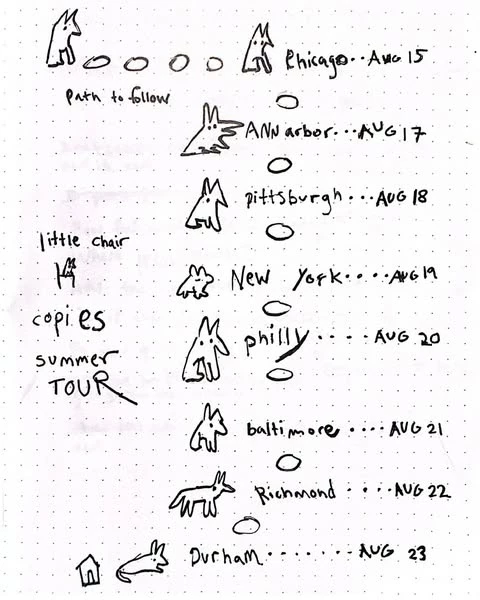 Chicago..Aug 15
path to follow
ANN arbor...AUG 17
pittsburgh...AUG 18
little chair
New York....AUG 19
copies
philly....AUG 20
summer
TOUR
baltimore....AUG 21
Richmond....AUG 22
Durham.......AUG 23